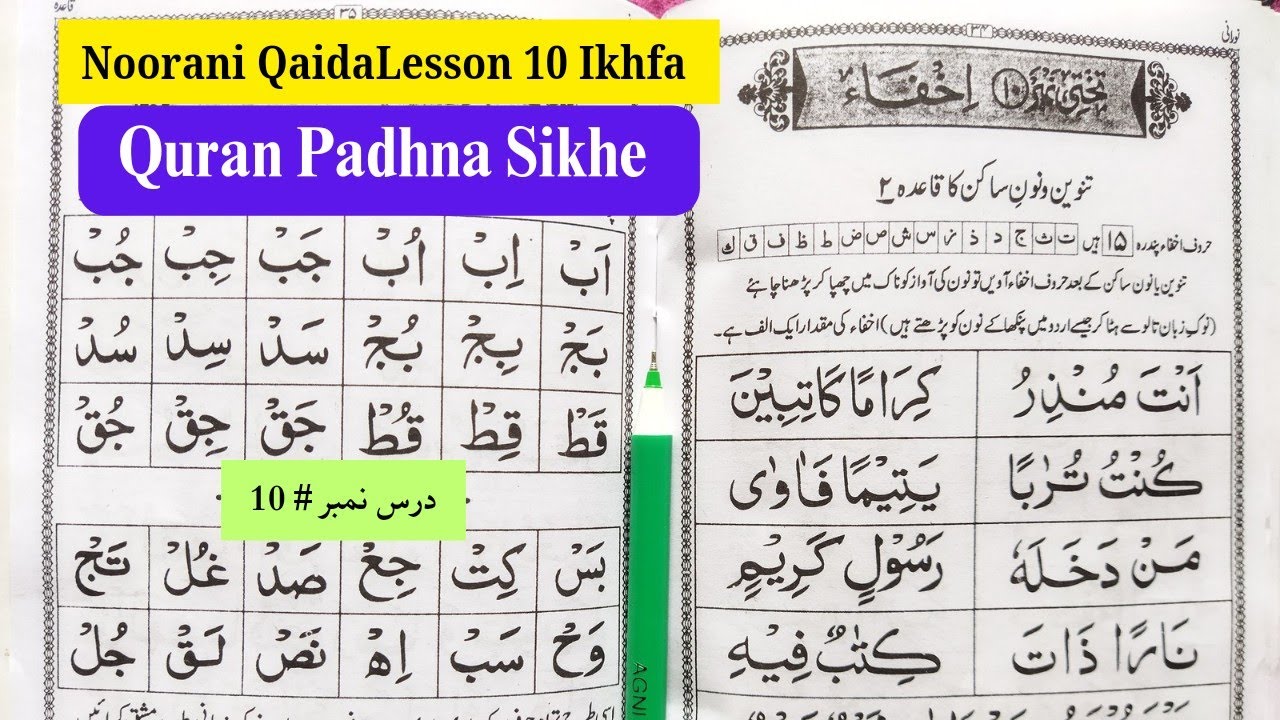 Noorani QaidaLesson 10 Ikhfa
Quran Padhna Sikhe
درس نمبر # 10
قاعدہ
۳۵
اَبْ اِبْ اُبْ جَبْ جِبْ جُبْ
بَجْ بِجْ بُجْ سَدْ سِدْ سُدْ
قَطْ قِطْ قُطْ جَقْ جِقْ جُقْ
بَسْ كِتْ جِعْ صَدْ غُلْ تَجْ
وَحْ سَبْ اِهْ نَصْ لَقْ جُلْ
نورانی
۳۴
تختی نمبر ۱۰ اِخْفَاء
تنوین و نونِ ساکن کا قاعدہ ۲
حروف اخفاء پندرہ ۱۵ ہیں ت ث ج د ذ ز س ش ص ض ط ظ ف ق ك
تنوین یا نون ساکن کے بعد حروف اخفاء آویں تو نون کی آواز کو ناک میں چھپا کر پڑھنا چاہئے
(نوک زبان تالو سے ہٹا کر جیسے اردو میں پنکھا کے نون کو پڑھتے ہیں) اخفاء کی مقدار ایک الف ہے۔
اَنْتَ مُنْذِرُ كِرَامًا كَاتِبِيْنَ
كُنْتُ تُرٰبًا يَتِيْمًا فَاٰوٰى
مَنْ دَخَلَهٗ رَسُوْلٍ كَرِيْمٍ
نَارًا ذَاتَ كِتٰبٌ فِيْهِ
AGNI